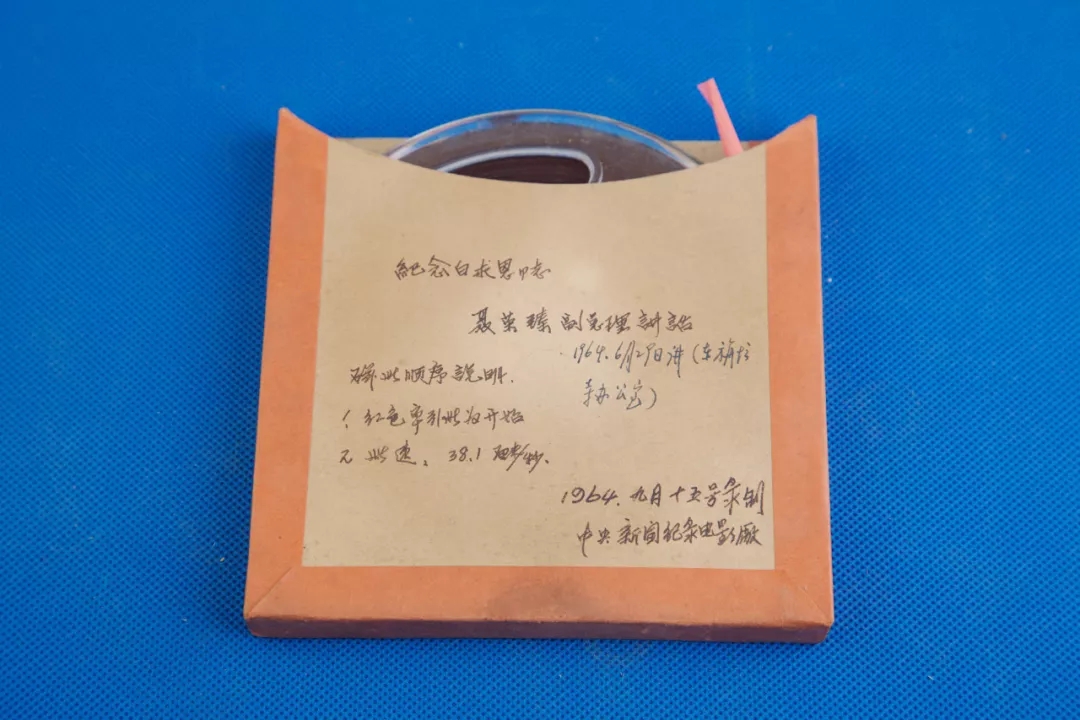 紀念白求恩同志
聂荣臻副总理講話
1964.6月29日讲(东
办公室)
磁带順序說明.
1. 红色牵引带为开始
2 带速: 38.1 厘米/秒.
1964.九月十五号录制
中央新闻纪录电影厰